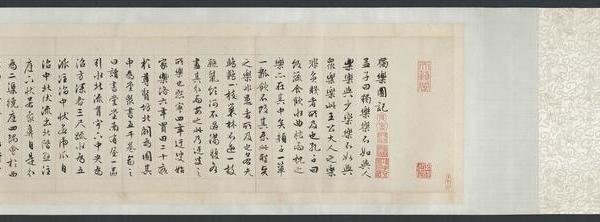 獨樂園記
孟子曰獨樂樂不如與人
樂樂與少樂樂不如與
眾樂樂此王公大人之樂
非貧賤者所及也孔子曰
飯蔬食飲水曲肱而枕之
樂亦在其中矣顏子一簞食
一瓢飲不改其樂此聖賢
之樂非愚者所及也若夫
鷦鷯巢林不過一枝
鼴鼠飲河不過滿腹各
盡其分而安之此乃迂叟之
所樂也熙寧四年迂叟始
家洛六年買田二十畝
於尊賢坊北關為園其
中為堂聚書五千卷命之
曰讀書堂堂南有屋一區
引水北流貫宇下中央為
沼方深各三尺疏水為五
派注沼中狀若虎爪自
沼中北伏流出北階懸注
庭下狀若象鼻自是分
為二渠繞庭四隅會於西